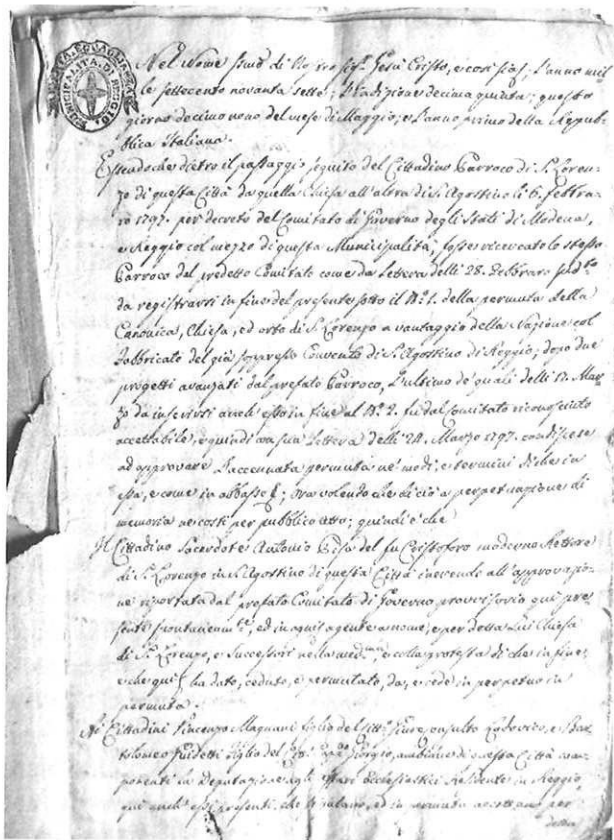 LIBERTA. EGUAGLIANZA
MUNICIPALITA. DI REGGIO.
Nel Nome di Nostro Sig.r Gesù Cristo, e così sia; L'anno mil
le settecento novanta sette; L'Indizione decima quinta; questo
giorno decimo nono del mese di Maggio; e l'anno primo della Repub
blica Italiana.
Essendoche dietro il passaggio seguito del Cittadino Parroco di S. Loren-
zo di questa Città da quella Chiesa all'altra di S. Agostino li 6. Febbra-
ro 1797. per decreto del Comitato di Governo degli Stati di Modena,
e Reggio col mezzo di questa Municipalità; fosse ricercato lo stesso
Parroco dal predetto Comitato come da Lettera delli 28. Febbraro sud.to
da registrarsi in fine del presente sotto il N.o 1. della permuta della
Canonica, Chiesa, ed orto di S. Lorenzo a vantaggio della Nazione col
Fabbricato del già soppresso Convento di S. Agostino di Reggio; dopo due
progetti avanzati dal prefato Parroco, L'ultimo de' quali delli 17. Mar
zo da inserirsi anch'esso in fine al N.o 2. fu dal Comitato riconosciuto
accettabile, e quindi con sua Lettera delli 24. Marzo 1797. condiscese
ad approvare l'accennata permuta ne' modi, e termini di che in
essa, e come in abbasso; Ora volendo che di ciò a perpetuazione di
memoria ne costi per pubblico atto; quindi è che
Il Cittadino Sacerdote Antonio del fu Cristoforo moderno Rettore
di S. Lorenzo in S. Agostino di questa Città inerendo all'approvazio-
ne riportata dal prefato Comitato di Governo provvisorio qui pre
sente spontaneam.te, ed in ogni agente a nome, e per detta sua Chiesa
di S. Lorenzo, e Successori nella med.ma, e colla protesta di che in fine,
e che qui ha dato, ceduto, e permutato, da, e cede in perpetuo in
permuta.
Ai Cittadini Vincenzo Magnani figlio del Citt.o Giureconsulto Lodovico, e Bar
tolomeo Guidetti figlio del Citt.o Giorgio, ambidue di questa Città com
ponenti la Deputazione agli affari Ecclesiastici Residente in Reggio,
qui anch'essi presenti, che stipulano, ed in permuta accettano per
detta